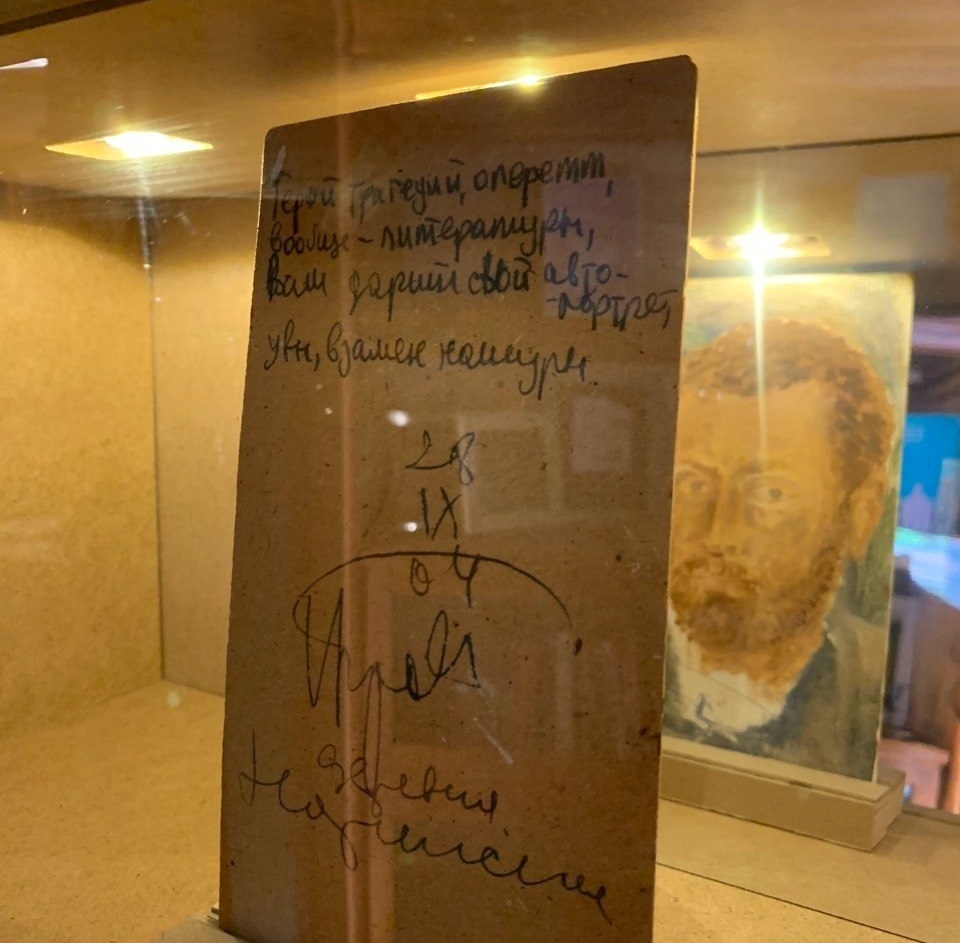 Герой трагедий, оперетт,
вообще - литературы,
Вам дарит свой авто-
-портрет,
увы, взамен натуры.
28
IX
04
деревня